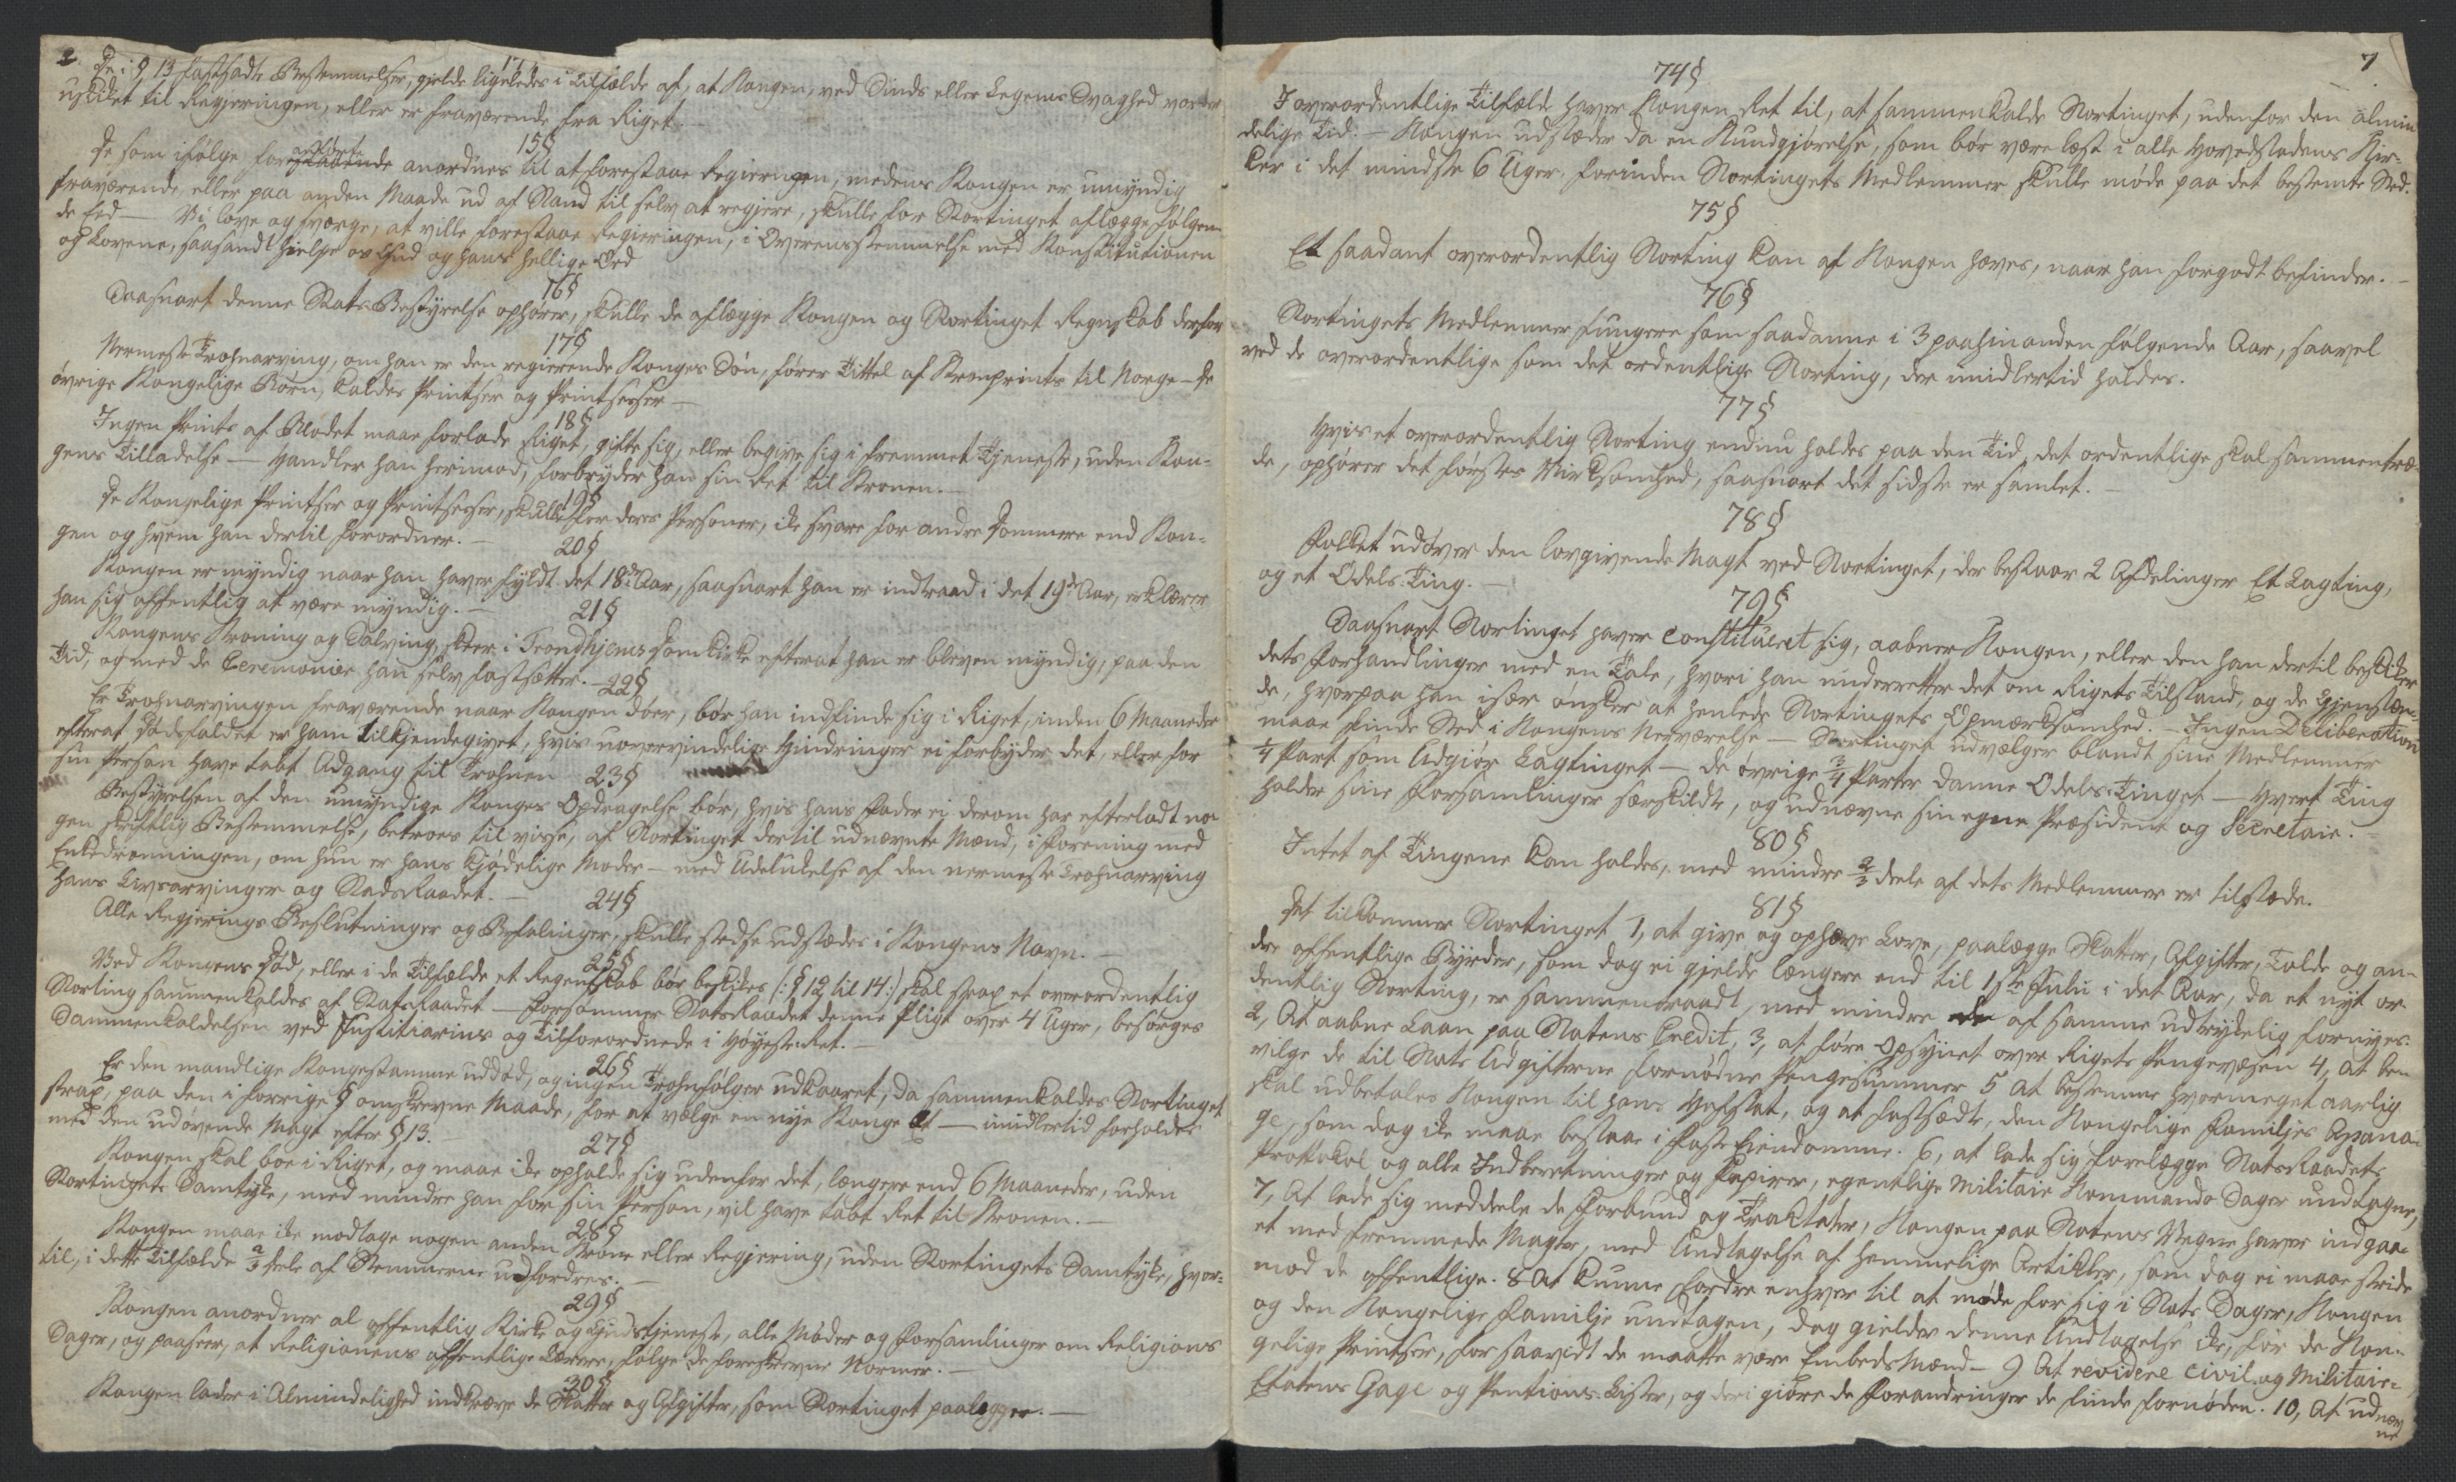 2
14§
De i § 13 fastsadte Bestemmelser, gjelde ligeledes i Tilfælde af, at Kongen, ved Sinds eller Legems Svaghed vorder
uskiket til Regjeringen, eller er fraværende fra Riget. —
15§
De som ifølge foreskaaende anførte anordnes til at forestaae Regieringen, medens Kongen er umyndig
fraværende, eller paa anden Maade ud af Stand til selv at regjere, skulle for Stortinget aflægge følgen-
de Eed — Vi love og sværge, at ville forestaae Regieringen, i Overensstemmelse med Konstitutionen
og Lovene, saasandt hielpe os Gud og hans hellige Ord
16§
Saasnart denne Stats Bestyrelse ophører, skulle de aflægge Kongen og Stortinget Regnskab derfor
17§
Nermeste Trohnarving, om han er den regierende Konges Søn, fører Tittel af Kronprints til Norge — De
øvrige Kongelige Børn, kaldes Printser og Printsesser —
18§
Ingen Prints af Blodet maae forlade Riget, gifte sig, eller begive sig i fremmet Tjeneste, uden Kon-
gens Tilladelse — Handler han herimod, forbryder han sin Ret til Kronen. —
19§
De Kongelige Printser og Printsesser, skulle for deres Personer, ike svare for andre Dommere end Kon-
gen og hvem han dertil forordner. —
20§
Kongen er myndig naar han haver fyldt det 18de Aar, saasnart han er indtraad i det 19de Aar, erklærer
han sig offentlig at være myndig. —
21§
Kongens Kroning og Salving, skeer i Trondhjems Domkirke efterat han er bleven myndig, paa den
Tid, og med de Ceremonier han selv fastsætter. —
22§
Er Trohnarvingen fraværende naar Kongen døer, bør han indfinde sig i Riget, inden 6 Maaneder
efterat Dødsfaldet er ham tilkjendegivet, hvis uovervindelige Hindringer ei forbyder det, eller for
sin Person have tabt Adgang til Trohnen
23§
Bestyrelsen af den umyndige Konges Opdragelse bør, hvis hans Fader ei derom har efterladt no-
gen skriftlig Bestemmelse, betroes til visse, af Stortinget dertil udnævnte Mænd, i forening med
Enkedronningen, om hun er hans kjødelige Moder — med Udelukelse af den nermeste Trohnarving
hans Livsarvinger og StadsRaadet. —
24§
Alle Regjerings Beslutninger og Befalinger, skulle stedse udstædes i Kongens Navn. —
25§
Ved Kongens Død, eller i de Tilfælde et Regentskab bør beskikes (: § 12 til 14 :) skal strax et overordentlig
Storting sammenkaldes af StatsRaadet — forsømmer StatsRaadet denne Pligt over 4 Uger, besørges
Sammenkaldelsen ved Justitiarius og Tilforordnede i Høyeste-Ret. —
26§
Er den mandlige Kongestamme uddød, og ingen Trohnfølger udkaaret, da sammenkaldes Stortinget
strax, paa den i forrige § omskrevne Maade, for at vælge en nye Konge Æt — imidlertid forholdes
med den udøvende Magt efter § 13.
27§
Kongen skal boe i Riget, og maae ike opholde sig udenfor det, længere end 6 Maaneder, uden
Stortingets Samtyke, med mindre han for sin Person, vil have tabt Ret til Kronen. —
28§
Kongen maae ike modtage nogen anden Krone eller Regjering, uden Stortingets Samtyke, hvor-
til, i dette Tilfælde 2/3 dele af Stemmerne udfordres. —
29§
Kongen anordner al offentlig Kirke og Gudstjeneste, alle Møder og Forsamlinger om Religions
Sager, og paaseer, at Religionens offentlige Lærere, følge de foreskrevne Normer. —
30§
Kongen lader i Almindelighed indkræve de Skatter og Afgifter, som Stortinget paalegger. —
7
74§
I overordentlige Tilfælde haver Kongen Ret til, at sammenkalde Stortinget, udenfor den almin
delige Tid: — Kongen udstæder da en Kundgjørelse, som bør være læst i alle Hovedstadens Kir-
ker i det mindste 6 Uger, forinden Stortingets Medlemmer skulle møde paa det bestemte Sted.
75§
Et saadant overordentlig Storting kan af Kongen hæves, naar han forgodt befinder. —
76§
Stortingets Medlemmer fungere som saadanne i 3 paahinanden følgende Aar, saavel
ved de overordentlige som det ordentlige Storting, der imidlertid holdes.
77§
Hvis et overordentlig Storting endnu holdes paa den Tid, det ordentlige skal sammentræ-
de, ophører det førstes Virksomhed, saasnart det sidste er samlet. —
78§
Folket udøver den lovgivende Magt ved Stortinget, der bestaar 2 Afdelinger Et Lagting,
og et Odels-Ting. —
79§
Saasnart Stortinget haver constitueret sig, aabner Kongen, eller den han dertil beskiker
dets Forhandlinger med en Tale, hvori han underretter det om Rigets Tilstand, og de Gjenstæn-
de, hvorpaa han især ønsker at henlede Stortingets Opmærksomhed. — Ingen Deliberation
maae finde Sted i Kongens Nerværelse — Stortinget udvælger blandt sine Medlemmer
1/4 Part som Udgjør Lagtinget — de øvrige 3/4 Parter danne Odels-Tinget — Hvert Ting
holder sine Forsamlinger særskildte, og udnævne sin egne Præsident og Secretair. —
80§
Intet af Tingene kan holdes, med mindre 2/3 deele af dets Medlemmer er tilstæde.
81§
Det tilkommer Stortinget 1, at give og ophæve Love, paalægge Skatter, Afgifter, Tolde og an-
dre offentlige Byrder, som dog ei gjelde længere end til 1ste Julii i det Aar, da et nyt or-
dentlig Storting, er sammentraadt, med mindre de af samme udtrykelig fornyes:
2, At aabne Laan paa Statens Credit, 3, at føre Opsynet over Rigets Pengevæsen 4, at be-
vilge de til Stats Udgifterne fornødne Pengesummer 5 At bestemme hvormeget aarlig
skal udbetales Kongen til hans Hofstat, og at fastsædte, den Kongelige Familjes Apana-
ge, som dog ike maae bestaae i faste Eiendomme. 6, at lade sig forelægge StatsRaadets
Prottokol og alle Indberetninger og Papirer, egentlige Militair Kommando Sager undtagne,
7, At lade sig meddele de Forbund og Traktater, Kongen paa Statens Vegne haver indgaa-
et med fremmede Magter, med Undtagelse af hemmelige Artikler, som dog ei maae stride
mod de offentlige. 8 At kunne fordre enhver til at møde for sig i Stats Sager, Kongen
og den Kongelige Familje undtagen, dog gjelder denne Undtagelse ike, for de Kon-
gelige Printser, for saavidt de maatte være EmbedsMænd — 9 At revidere Civil og Militair-
Etatens Gage og Pentions-Lister, og deri giøre de Forandringer de finde fornøden. 10, At udnæv
ne